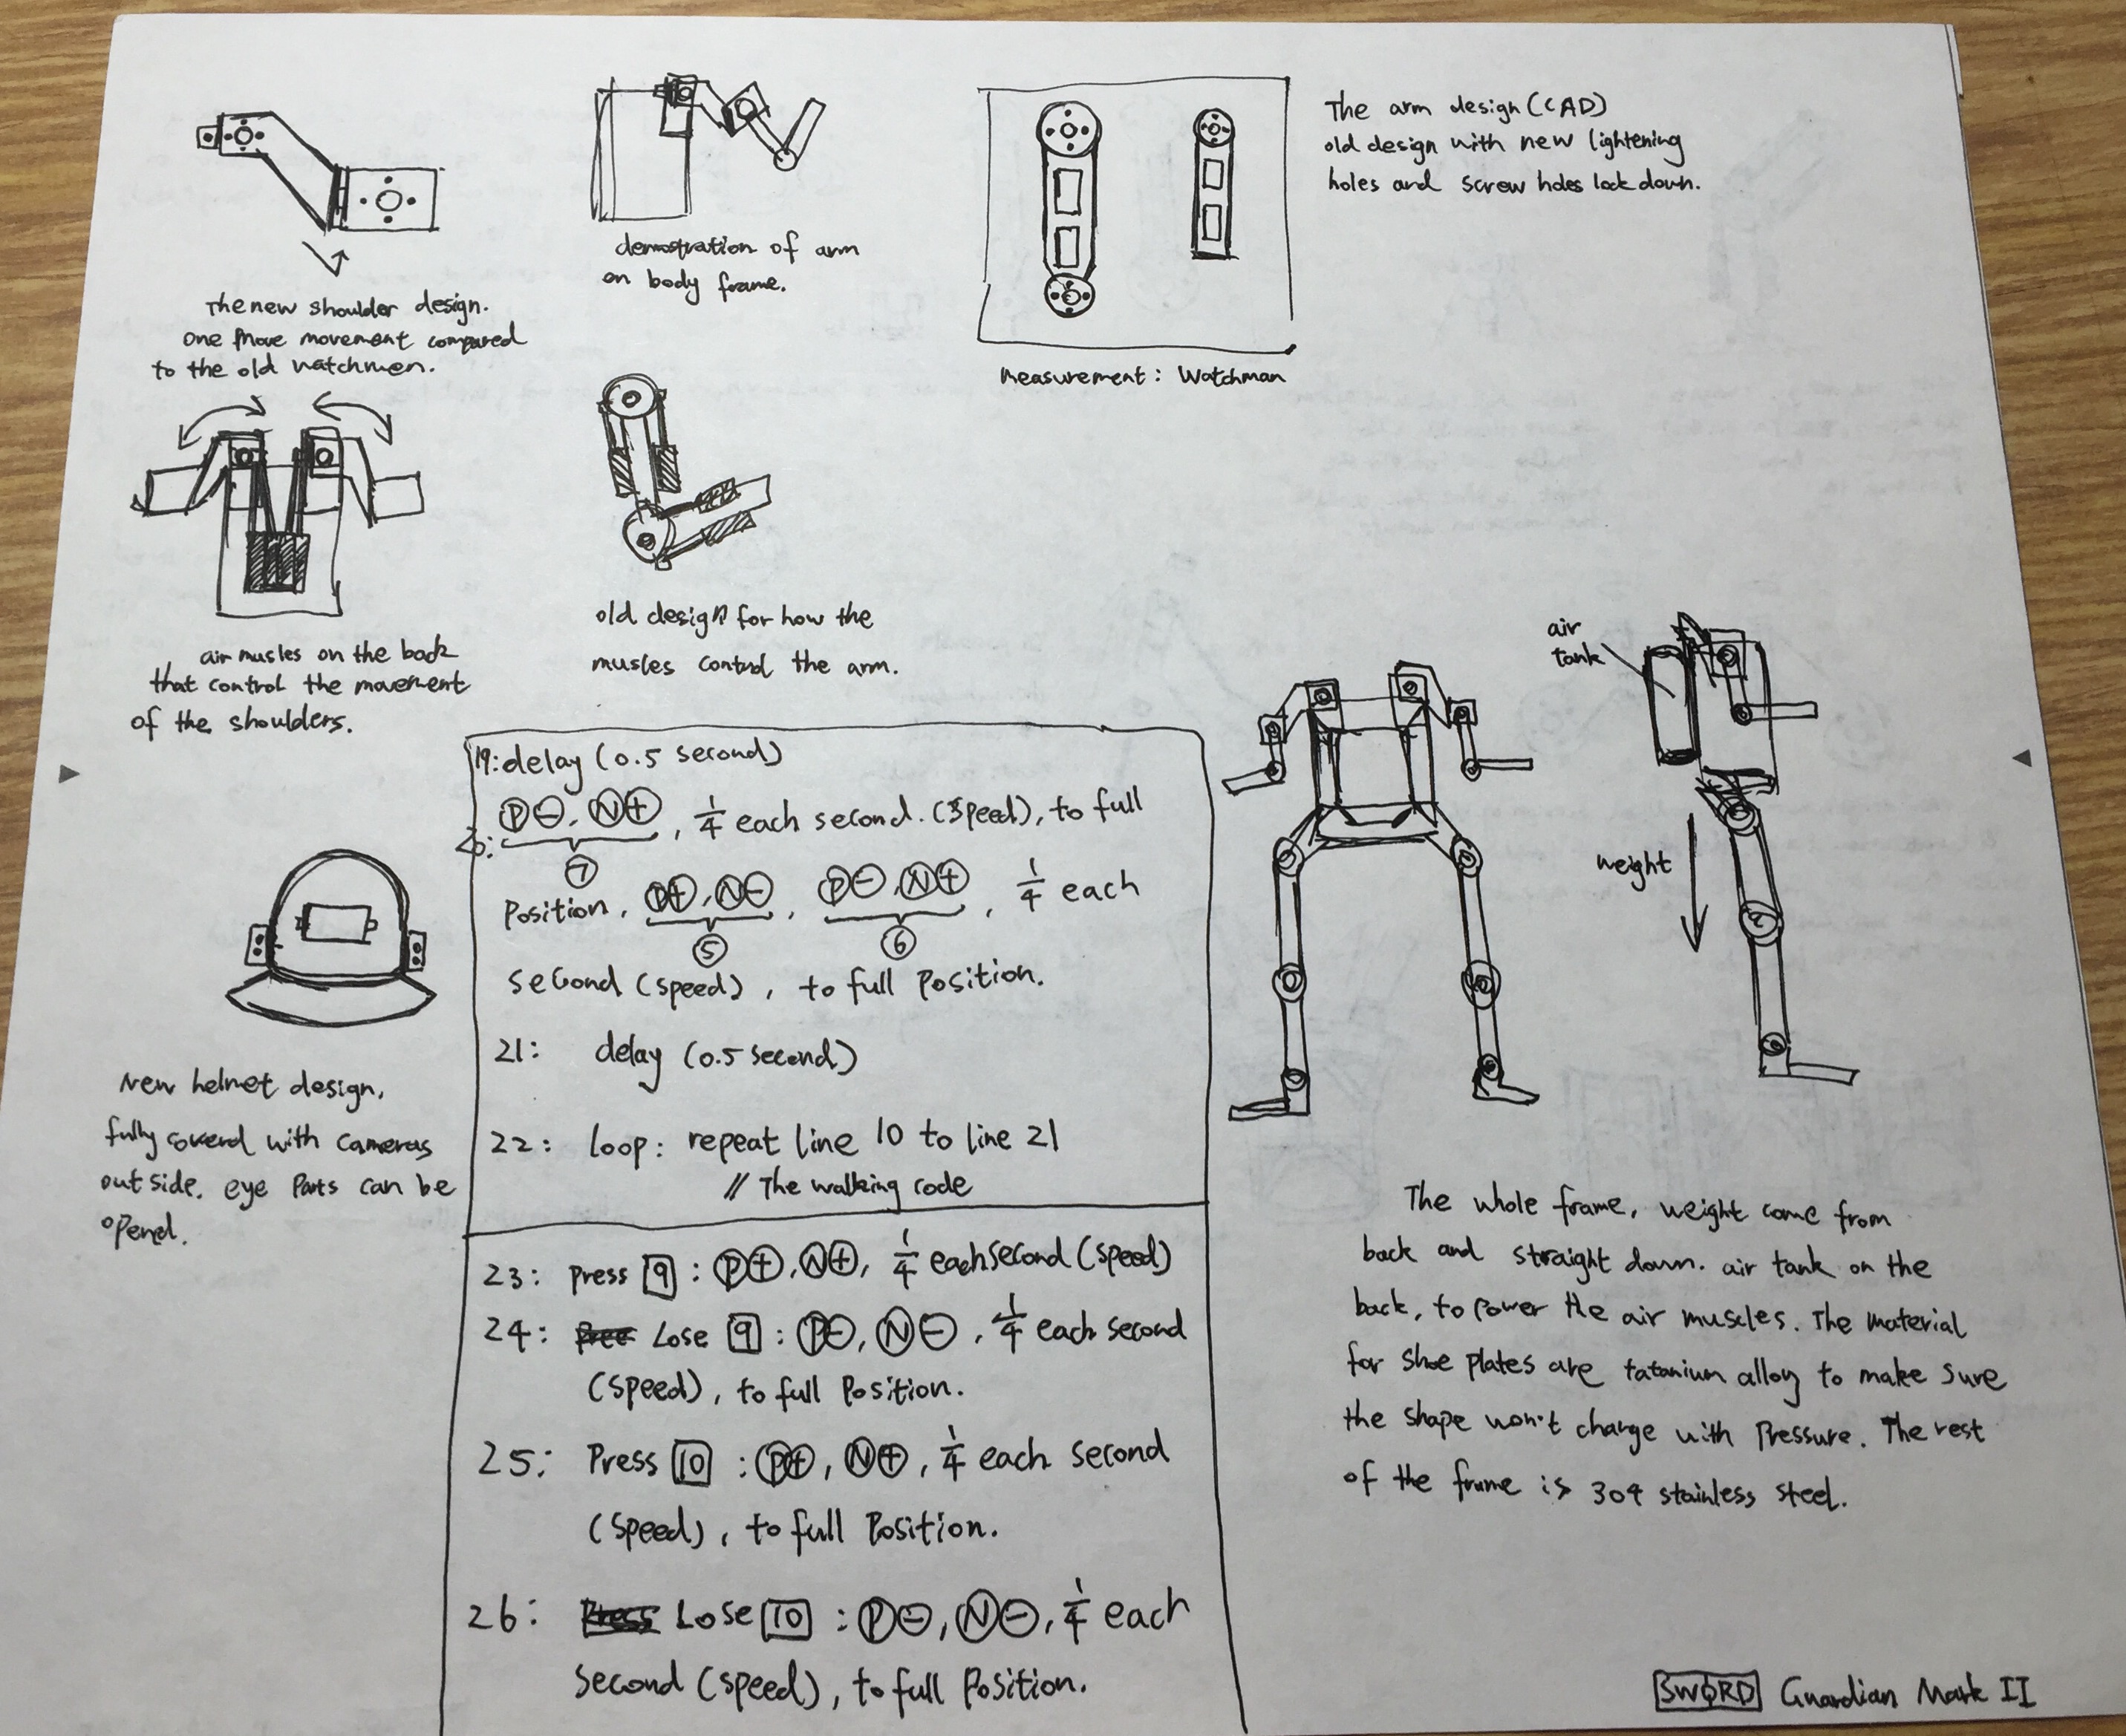 The new shoulder design.
One more movement compared
to the old watchmen.
demostration of arm
on body frame.
measurement: Watchman
The arm design (CAD)
old design with new lightening
holes and screw holes lock down.
air musles on the back
that control the movement
of the shoulders.
old design for how the
musles control the arm.
New helmet design,
fully coverd with cameras
outside. eye parts can be
opend.
19: delay (0.5 second)
20: P⊖, N⊕, 1/4 each second. (speed), to full
⑦
Position, P⊕, N⊖, P⊖, N⊕, 1/4 each
⑤ ⑥
second (speed), to full Position.
21: delay (0.5 second)
22: loop: repeat line 10 to line 21
// The walking code
23: press [9]: P⊕, N⊕, 1/4 each second (speed)
24: Lose [9]: P⊖, N⊖, 1/4 each second
(speed), to full Position.
25: Press [10]: P⊕, N⊕, 1/4 each second
(speed), to full Position.
26: Lose [10]: P⊖, N⊖, 1/4 each
second (speed), to full Position.
air
tank
weight
The whole frame, weight come from
back and straight down. air tank on the
back, to power the air muscles. The material
for shoe plates are tatanium alloy to make sure
the shape won't change with Pressure. The rest
of the frame is 304 stainless steel.
SWORD Guardian Mark II